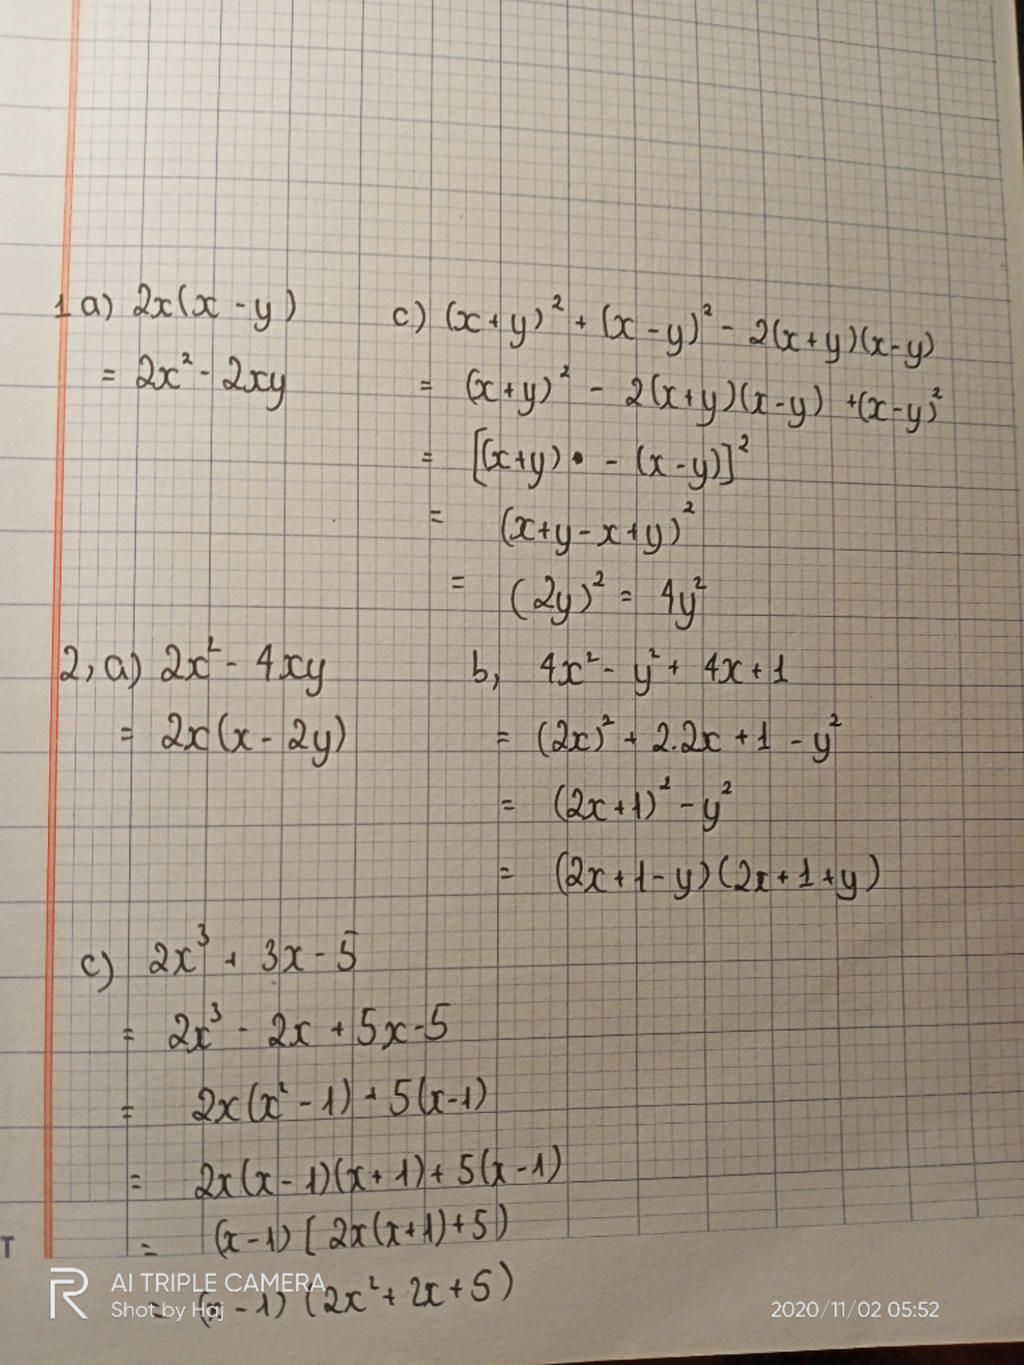 1 a) 2x(x - y)
= 2x² - 2xy
c) (x+y)² + (x-y)² - 2(x+y)(x-y)
= (x+y)² - 2(x+y)(x-y) +(x-y)²
= [(x+y) • - (x-y)]²
= (x+y-x+y)²
= (2y)² = 4y²
2, a) 2x² - 4xy
= 2x(x - 2y)
b, 4x² - y² + 4x + 1
= (2x)² + 2.2x + 1 - y²
= (2x+1)² - y²
= (2x+1-y)(2x+1+y)
c) 2x³ + 3x - 5
= 2x³ - 2x + 5x - 5
= 2x(x² - 1) + 5(x-1)
= 2x(x-1)(x+1) + 5(x-1)
= (x-1) [2x(x+1)+5)
= (x-1) (2x² + 2x + 5)
T
AI TRIPLE CAMERA
Shot by Haj
2020/11/02 05:52